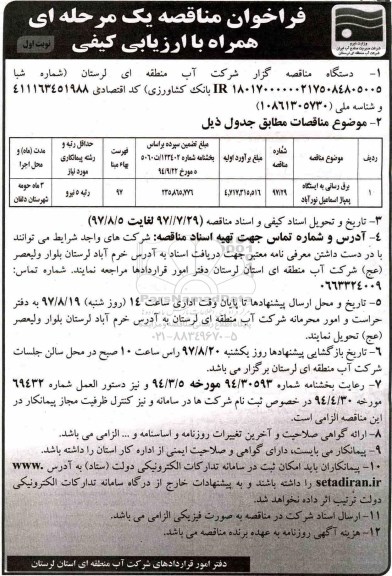 وزارت نیرو
شرکت مدیریت منابع آب ایران
شرکت آب منطقه ای لرستان
فراخوان مناقصه یک مرحله ای
همراه با ارزیابی کیفی
نوبت اول
۱- دستگاه مناقصه گزار شرکت آب منطقه ای لرستان (شماره شبا
IR ۱۸۰۱۷۰۰۰۰۰۰۲۱۷۵۰۸۴۸۰۵۰۰۵ بانک کشاورزی) کد اقتصادی ۴۱۱۱۶۳۴۵۱۹۸۸
و شناسه ملی (۱۰۸۶۱۳۰۵۷۳۰)
۲- موضوع مناقصات مطابق جدول ذیل
ردیف | موضوع مناقصه | شماره مناقصه | مبلغ برآورد اولیه | مبلغ تضمین سپرده براساس بخشنامه شماره ۱۲۳۴۰۲/ت۵۰۶۰ ه مورخ ۹۴/۹/۲۲ | فهرست بهاء مبنا | حداقل رتبه و رشته پیمانکاری مورد نیاز | مدت (ماه) و محل اجرا
۱ | برق رسانی به ایستگاه پمپاژ اسماعیل نورآباد | ۹۷/۲۹ | ۴,۷۱۷,۳۱۵,۵۱۶ | ۲۳۵,۸۶۵,۷۷۶ | ۹۷ | رتبه ۵ نیرو | ۳ ماه حومه شهرستان دلفان
۳- تاریخ و تحویل اسناد کیفی و اسناد مناقصه (۹۷/۷/۲۹ لغایت ۹۷/۸/۵)
۴- آدرس و شماره تماس جهت تهیه اسناد مناقصه: شرکت های واجد شرایط می توانند
با در دست داشتن معرفی نامه معتبر جهت دریافت اسناد به آدرس خرم آباد لرستان بلوار ولیعصر
(عج) شرکت آب منطقه ای استان لرستان دفتر امور قراردادها مراجعه نمایند. شماره تماس:
۰۶۶۳۳۲۴۰۰۹
۵- تاریخ و محل ارسال پیشنهادها تا پایان وقت اداری ساعت ۱۴ (روز شنبه) ۹۷/۸/۱۹ به دفتر
حراست و امور محرمانه شرکت آب منطقه ای لرستان به آدرس خرم آباد لرستان بلوار ولیعصر
(عج) تحویل نمایند.
۰۲۱-۸۸۳۴۹۶۷۰-۵
۶- تاریخ بازگشایی پیشنهادها روز یکشنبه ۹۷/۸/۲۰ راس ساعت ۱۰ صبح در محل سالن جلسات
شرکت آب منطقه ای استان لرستان برگزار می باشد.
۷- رعایت بخشنامه شماره ۹۴/۳۰۵۹۳ مورخه ۹۴/۳/۵ و نیز دستور العمل شماره ۶۹۴۳۲
مورخه ۹۴/۴/۳۰ در خصوص ثبت نام شرکت ها در سامانه و نیز کنترل ظرفیت مجاز پیمانکار در
این مناقصه الزامی است.
۸- ارائه گواهی صلاحیت و آخرین تغییرات روزنامه و اساسنامه و ... الزامی می باشد.
۹- پیمانکار می بایست، دارای گواهی و صلاحیت ایمنی از اداره کار استان را داشته باشد.
۱۰- پیمانکاران باید امکان ثبت در سامانه تدارکات الکترونیکی دولت (ستاد) به آدرس www.
setadiran.ir را داشته باشند و به پیشنهادات خارج از درگاه سامانه تدارکات الکترونیکی
دولت ترتیب اثر داده نخواهد شد.
۱۱- ارسال اسناد شرکت در مناقصه به صورت فیزیکی الزامی می باشد.
۱۲- هزینه آگهی روزنامه به عهده برنده مناقصه می باشد.
دفتر امور قراردادهای شرکت آب منطقه ای استان لرستان